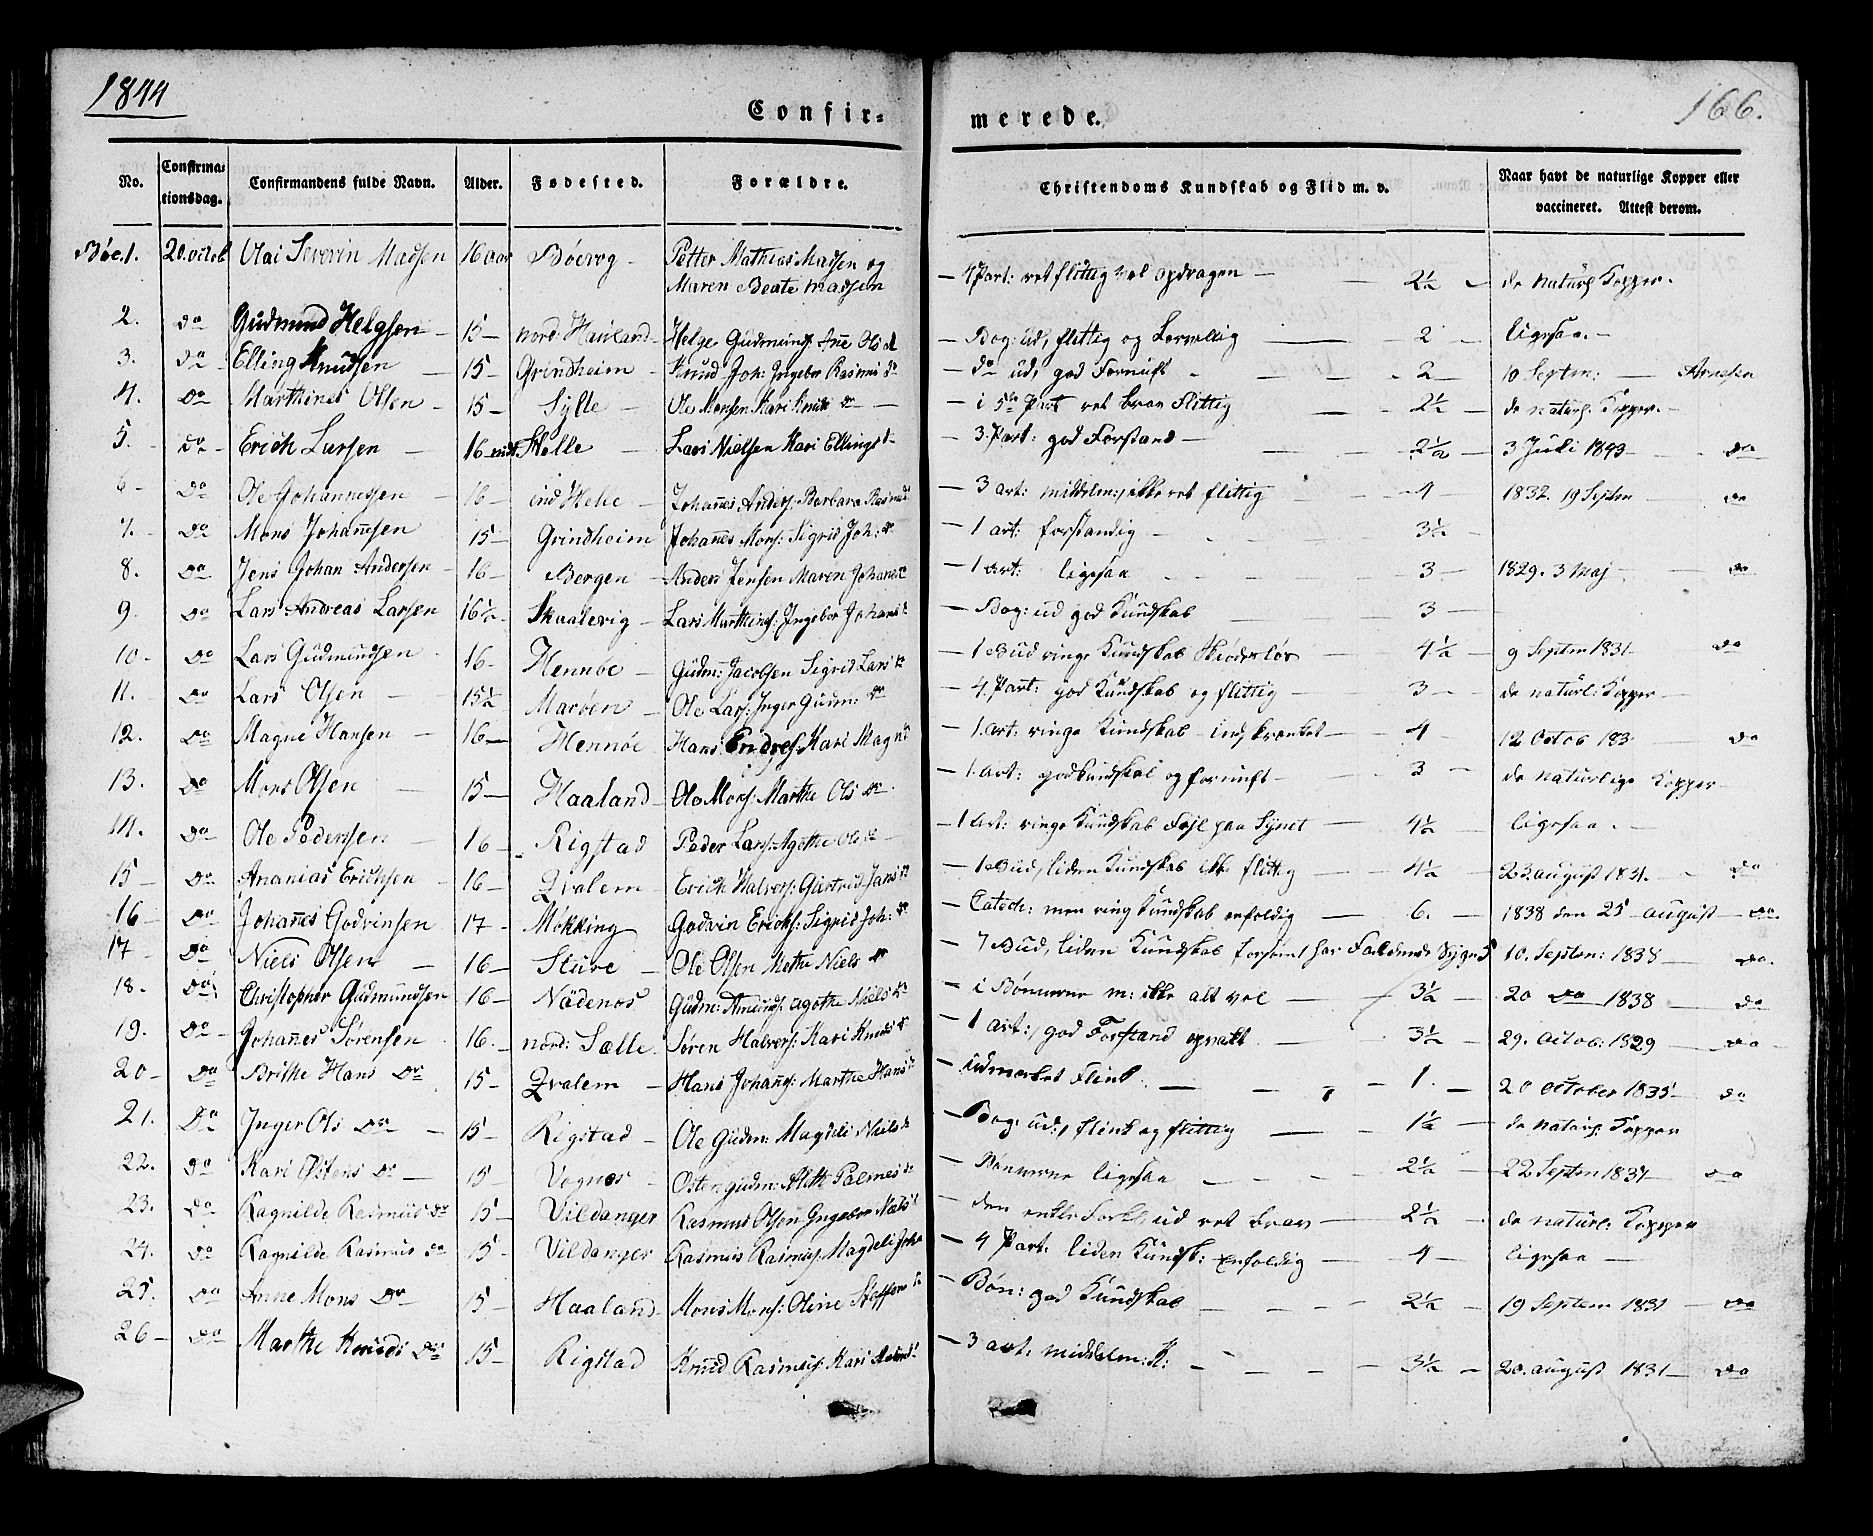 1844
Confir-
merede.
166.
No.
Confirma-
tionsdag.
Confirmandens fulde Navn.
Alder.
Fødested.
Forældre.
Christendoms Kundskab og Flid m. v.
Naar havt de naturlige Kopper eller
vaccineret. Attest derom.
Böe 1. 20. octob Olai Severin Madsen 16 aar Böevog - Petter Mathias Madsen og
Maren Beate Madsen - 4 Part: ret flittig vel opdragen - 2½ - de naturl Kopper.
2. do Gudmund Helgsen - 15 - nord: Hauland - Helge Gudmunds: Anne Ols dr - Bog: ud, flittig og - 2 - ligesaa. -
3. do Elling Knudsen - 15 - Grindheim - Knud Joh: Ingebor Rasmus dr - do ud, god Fornuft - 2 - 10 Septen: - Arnesen
4. do Marthines Olsen - 15 - Sylte - Ole Monsen Kari Knuds dr - i 5te Part ret brav flittig - 2½ - de naturl: Kopper. -
5. - do - Erich Larsen - 16 - Helle - Lars Nielsen Kari Ellings dr - 3. Part: god Forstand - 2½ - 3 Juli 1843 - do
6 - do Ole Johannessen - 16 - ind Helle - Johannes Anders: Barbara Rasmus - 3 art: middelm:, ikke ret flittig - 4 - 1832. 19 Septen - do
7. - do Mons Johannsen 15 - Grindheim Johannes Mons: Sigrid Joh: dr - 1 art: forstandig - 3½ -
8. do Jens Johan Andersen - 16 - Bergen - Anders Jensen Maren Johans dr - 1 art: ligesaa - 3 - 1829. 3 Maj - do
9. do Lars Andreas Larsen 16½ - Skaalevig - Lars Marthins: Ingebor Johans dr - Bog: ud god Kundskab - 3 -
10 - do Lars Gudmundsen - 16 - Hennöe - Gudm: Jacobsen Sigrid Lars dr - 1 Bud ringe Kundskab - 4½ - 9 Septen 1831 - do
11. do Lars Olsen - 15½ Maröen - Ole Lars: Inger Gudm: dr - 4. Part: god Kundskab og flittig - 3 - de naturl: Kopper -
12. do Magne Hansen - 16 - Hennöe Hans Endres: Kari Magns - 1. art: ringe Kundskab - indskrænket - 4 - 12 Octob 183 - do
13. do Mons Olsen - 15 - Haaland - Ole Mons: Marthe Ols dr - 1. art: god Kundskab og fornuft - 3 - de naturlige Kopper -
14. do Ole Pedersen - 16 - Rigstad Peder Lars: Agathe Ols dr - 1 Art: ringe Kundskab Fejl paa Synet - 4½ - ligesaa. -
15 - do Ananias Erichsen - 16 - Qvalem - Erich Halvers: Giertrud Jans dr - 1 Bud, liden Kundskab ikke flittig - 4½ - 23. august 1831. - do
16 - do Johannes Godvinsen 17 - Mökking Godvin Ericks: Sigrid Joh: dr - Catech: men ring Kundskab enfoldig - 6. - 1838 den 25 - august - do.
17 - do Niels Olsen - 16 - Sture - Ole Olsen Methe Niels dr - 7 Bud, liden Kundskab forsömt har Faldende Syge 5 10. Septen: 1838 - do.
18. - do Christopher Gudmundsen 16 - Nödenes Gudm: Amunds: Agathe Niels dr - i Bönnerne m: ikke alt vel - 3½ - 20 do 1838 - do
19. do - Johannes Sörensen - 16. - nord: Sælle - Sören Halvers: Kari Knuds dr - 1 art:, god Forstand - 3½ - 29. Octob: 1829 - do -
20 - do Brithe Hans dr 15 - Qvalem - Hans Johans: Marthe Hans dr - udmærket Flink - 1. - 20 October 1835 - do
21. Do Inger Ols dr - 15 - Rigstad - Ole Gudm: Magdeli Niels dr - Bog: ud:, flink og flittig - 1½ - de naturl: Kopper
22. do Kari Östens dr - 15 - Vognes - Osten Gudm: Palmes dr - Bönnerne ligesaa - 2½ - 22 Septen 1837 - do
23. do Ragnilde Rasmus dr 15 - Vildanger Rasmus Olsen Ingebor Niels dr - den Forkl, ud ret brav - 2½ - de naturl: Kopper
24. do Ragnilde Rasmus dr 15 - Vildanger Rasmus Rasmus: Magdeli - 4 Part: liden Kundsk: Enfoldig - 4 - ligesaa -
25. do Anne Mons dr 15 - Haaland - Mons Mons: Oline Steffens dr - Bön: god Kundskab - 2½ - 19 Septem 1831 - do
26 - do Marthe Knuds dr 15 - Rigstad Knud Rasmus: Kari - 3 art: middelm: K: - 3½ - 20. august 1831 - do